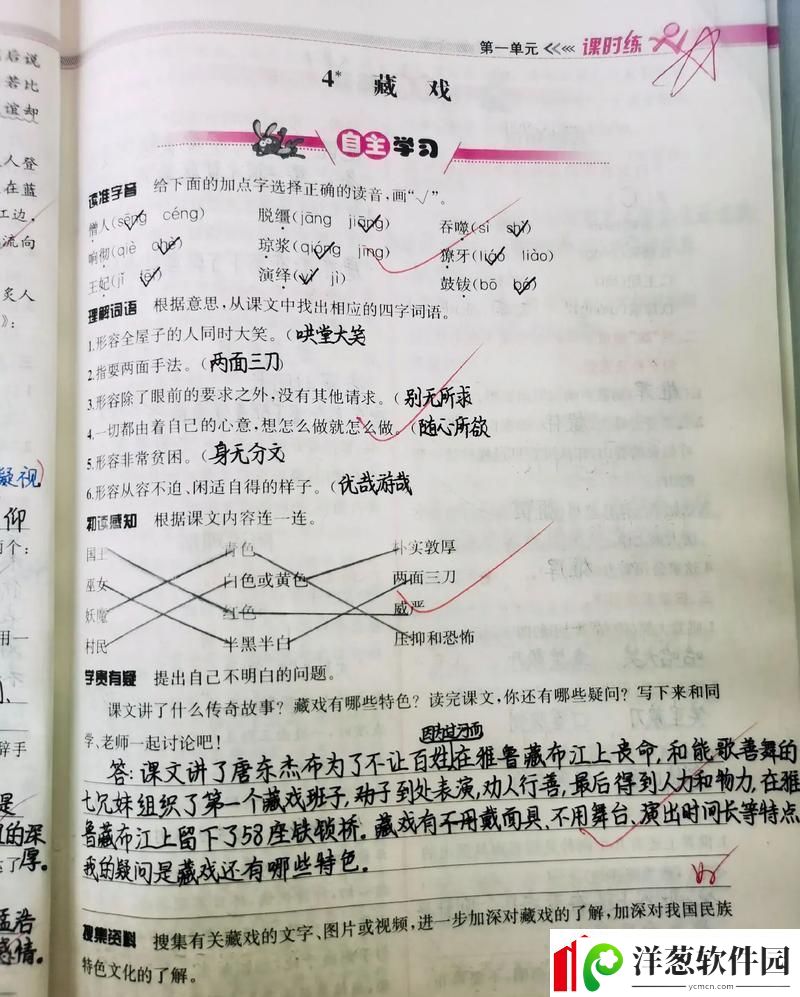 第一单元 课时练
4* 藏戏
自主学习
读准字音 给下面的加点字选择正确的读音,画“√”。
僧人(sēng céng) 脱缰(jāng jiāng) 吞噬(sì shì)
响彻(qiè chè) 琼浆(qióng jīng) 獠牙(liáo liào)
王妃(jǐ fēi) 演绎(yì jì) 鼓钹(bō bó)
理解词语 根据意思,从课文中找出相应的四字词语。
1.形容全屋子的人同时大笑。(哄堂大笑
2.指耍两面手法。(两面三刀)
3.形容除了眼前的要求之外,没有其他请求。(别无所求
4.一切都由着自己的心意,想怎么做就怎么做。(随心所欲
5.形容非常贫困。(身无分文
6.形容从容不迫、闲适自得的样子。(优哉游哉
初读感知 根据课文内容连一连。
国王 青色 朴实敦厚
巫女 白色或黄色 两面三刀
妖魔 红色 威严
村民 半黑半白 压抑和恐怖
学贵有疑 提出自己不明白的问题。
课文讲了什么传奇故事?藏戏有哪些特色?读完课文,你还有哪些疑问?写下来和同
学、老师一起讨论吧!
因为过河而
答:课文讲了唐东杰布为了不让百姓在雅鲁藏布江上丧命,和能歌善舞的
七兄妹组织了第一个藏戏班子,劝子到处表演,劝人行善,最后得到人力和物力,在雅
鲁藏布江上留下了58座铁锁桥。藏戏有不用戴面具、不用舞台、演出时间长等特点
我的疑问是藏戏还有哪些特色。
搜集资料 搜集有关藏戏的文字、图片或视频,进一步加深对藏戏的了解,加深对我国民族
特色文化的了解。
后说
若比
谊却
人登
在蓝
江边,
流向
炙人
》:
凝视)
仰
个:
用一
辞手
是
的深
了厚。
孟浩
感情。
洋葱软件园
ycmcn.com